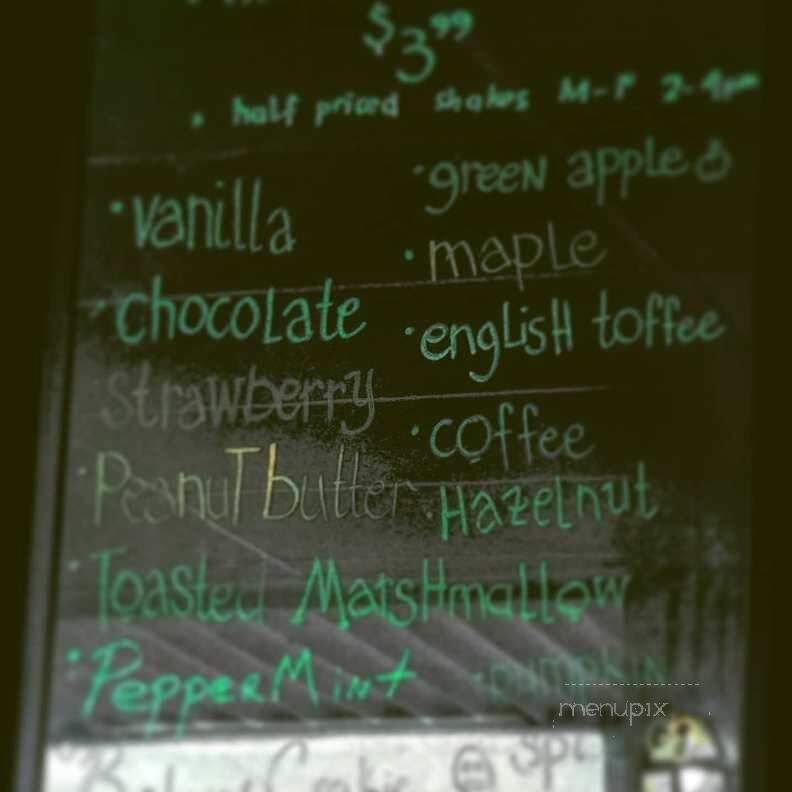 $3.99
• half priced shakes M-F 2-4pm
• vanilla
• chocolate
strawberry
• Peanut butter
• Toasted Marshmallow
• PepperMint
• green apple
• maple
• english toffee
• coffee
• Hazelnut
• pumpkin
menupix
Cookie